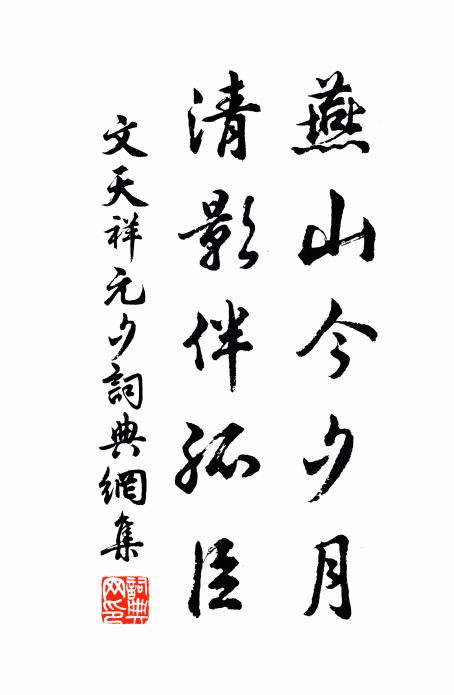 燕山今夕月
清影伴孤臣
文天祥元夕詞典網集
詞典網印